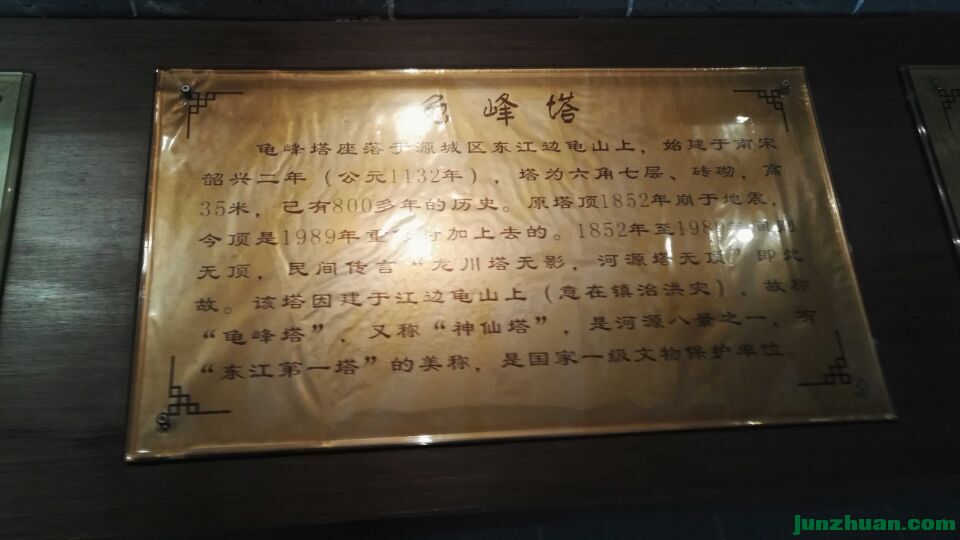 峰塔
龟峰塔座落于源城区东江边龟山上，始建于南宋
韶兴二年（公元1132年），塔为六角七层、砖砌，高
35米，己有800多年的历史。原塔顶1852年崩于地震，
今顶是1989年重 时加上去的。1852年至198 年间
无顶，民间传言“龙川塔无影，河源塔无顶”即此
故。该塔因建于江边龟山上（意在镇治洪灾），故称
“龟峰塔”，又称“神仙塔”，是河源八景之一，有
“东江第一塔”的美称，是国家一级文物保护单位。
junzhuan.com